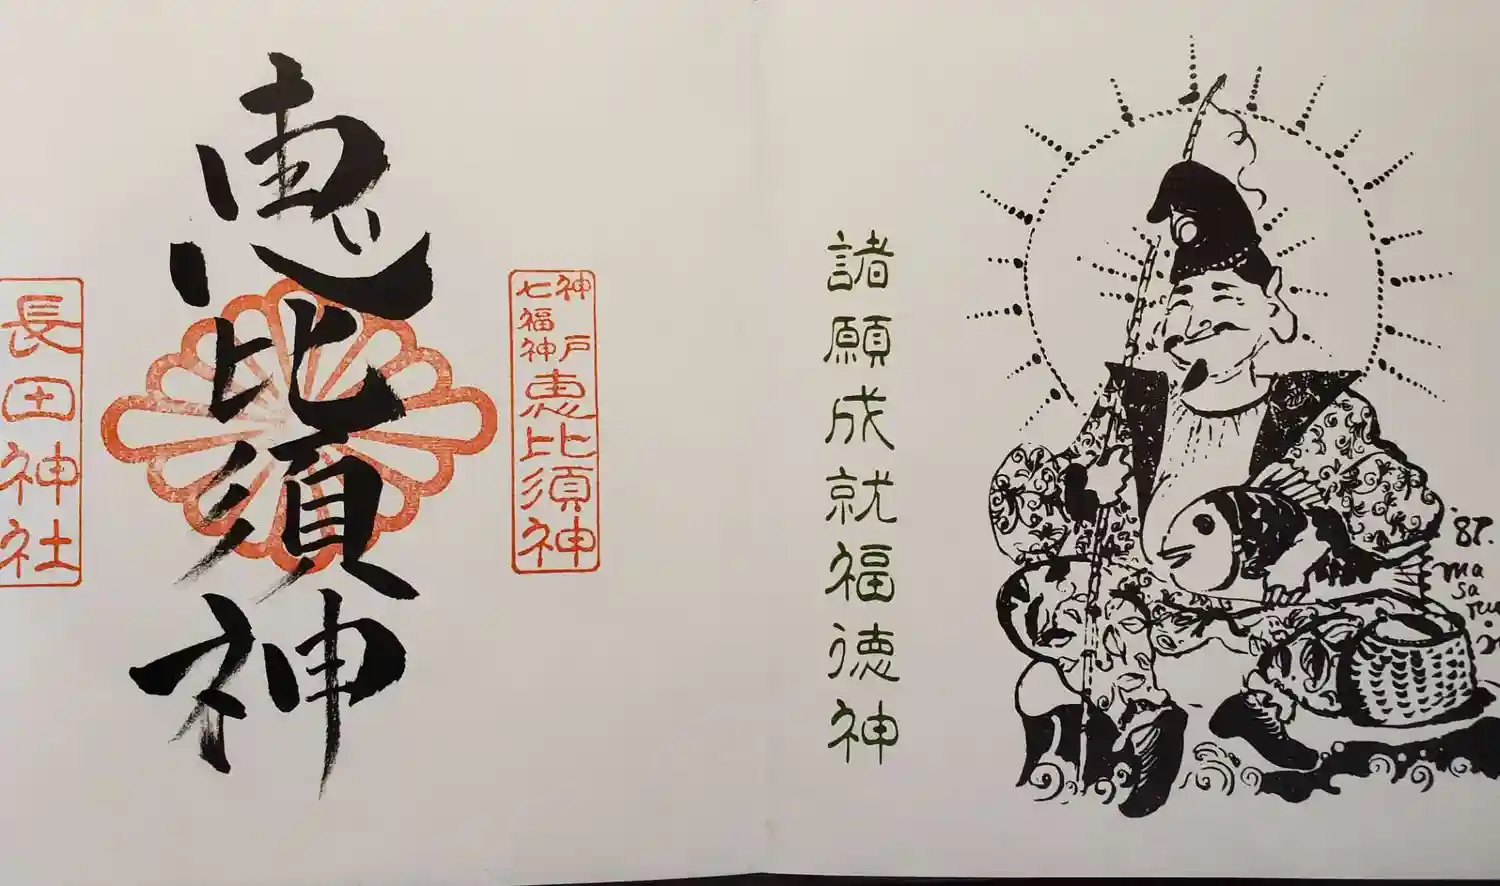 諸願成就福徳神
'87.
masaru
神戸
七福神
恵比須神
恵比須神
長田神社